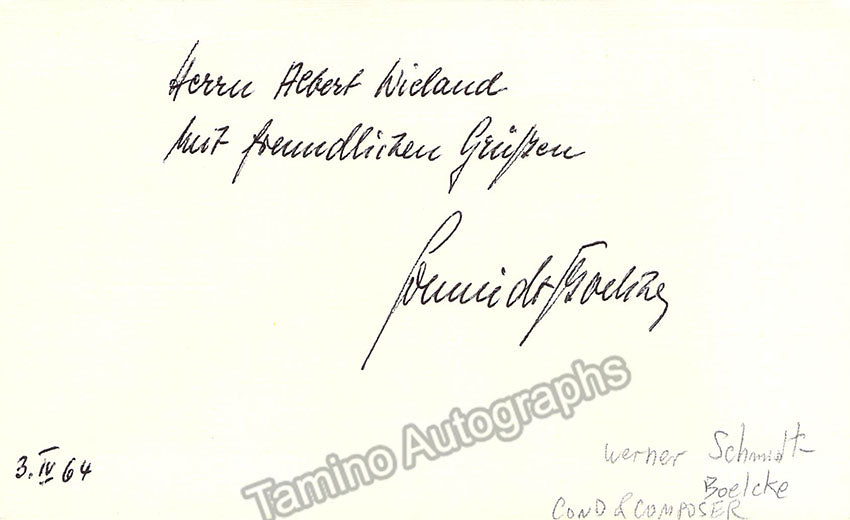 Herrn Albert Wieland
Mit freundlichen Grüßen
Schmidt-Boelcke
Tamino Autographs
3. IV 64
Werner Schmidt-
Boelcke
COND & COMPOSER